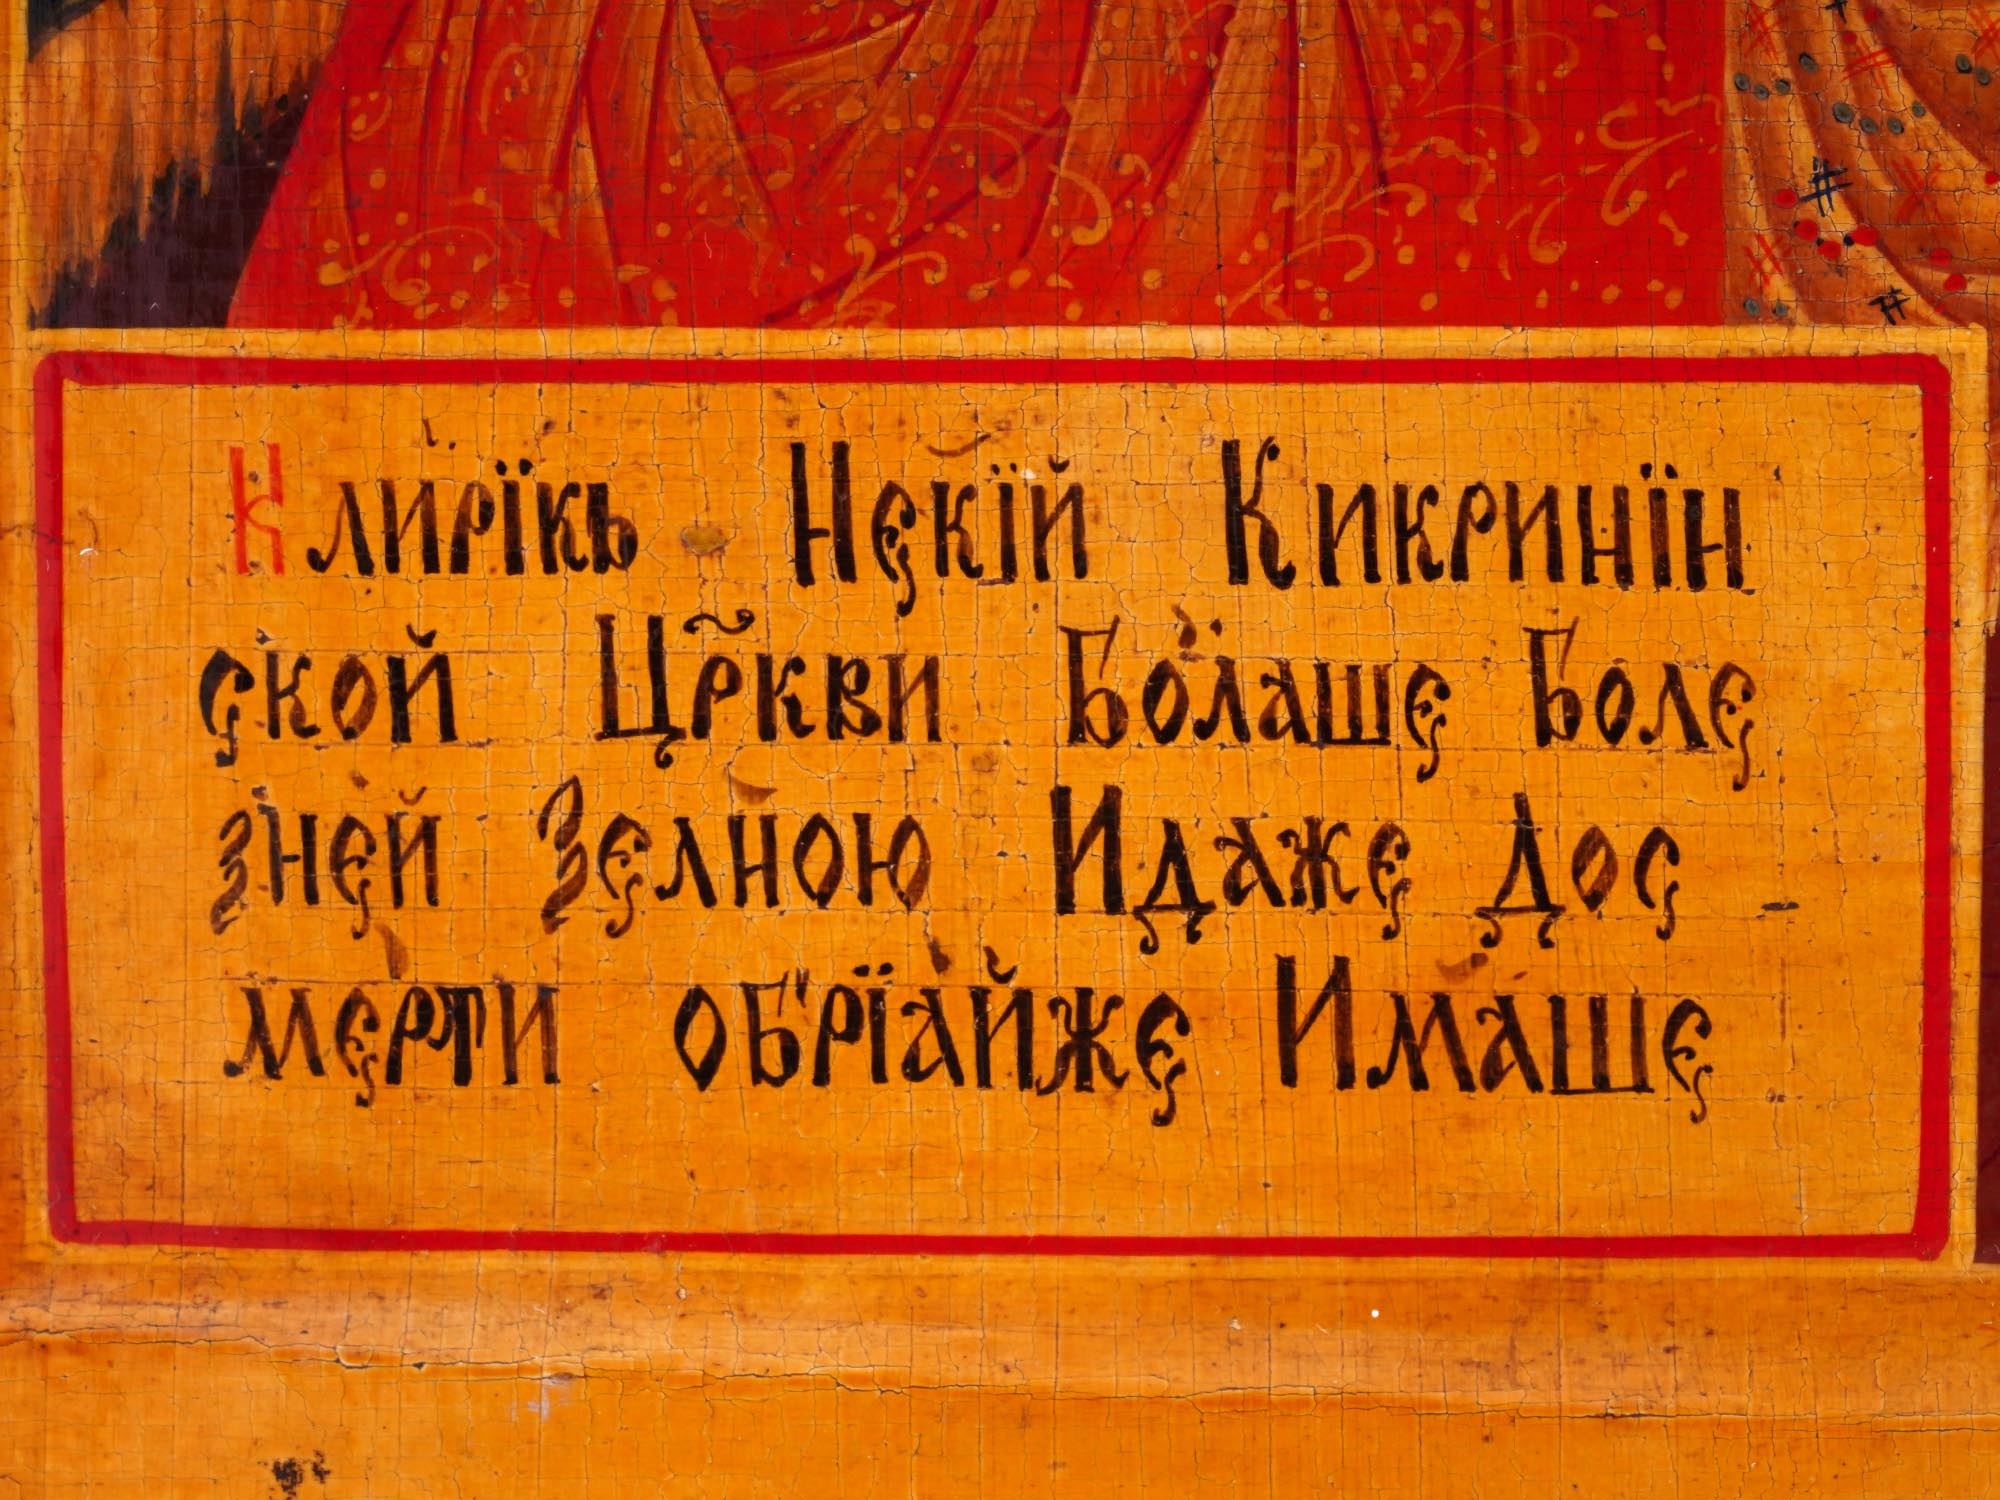 Клирїкь Некїй Кикринїн
ской Цр҃кви Болаше Боле
зней Зелною Идаже Дос -
мерти обрїайже Имаше